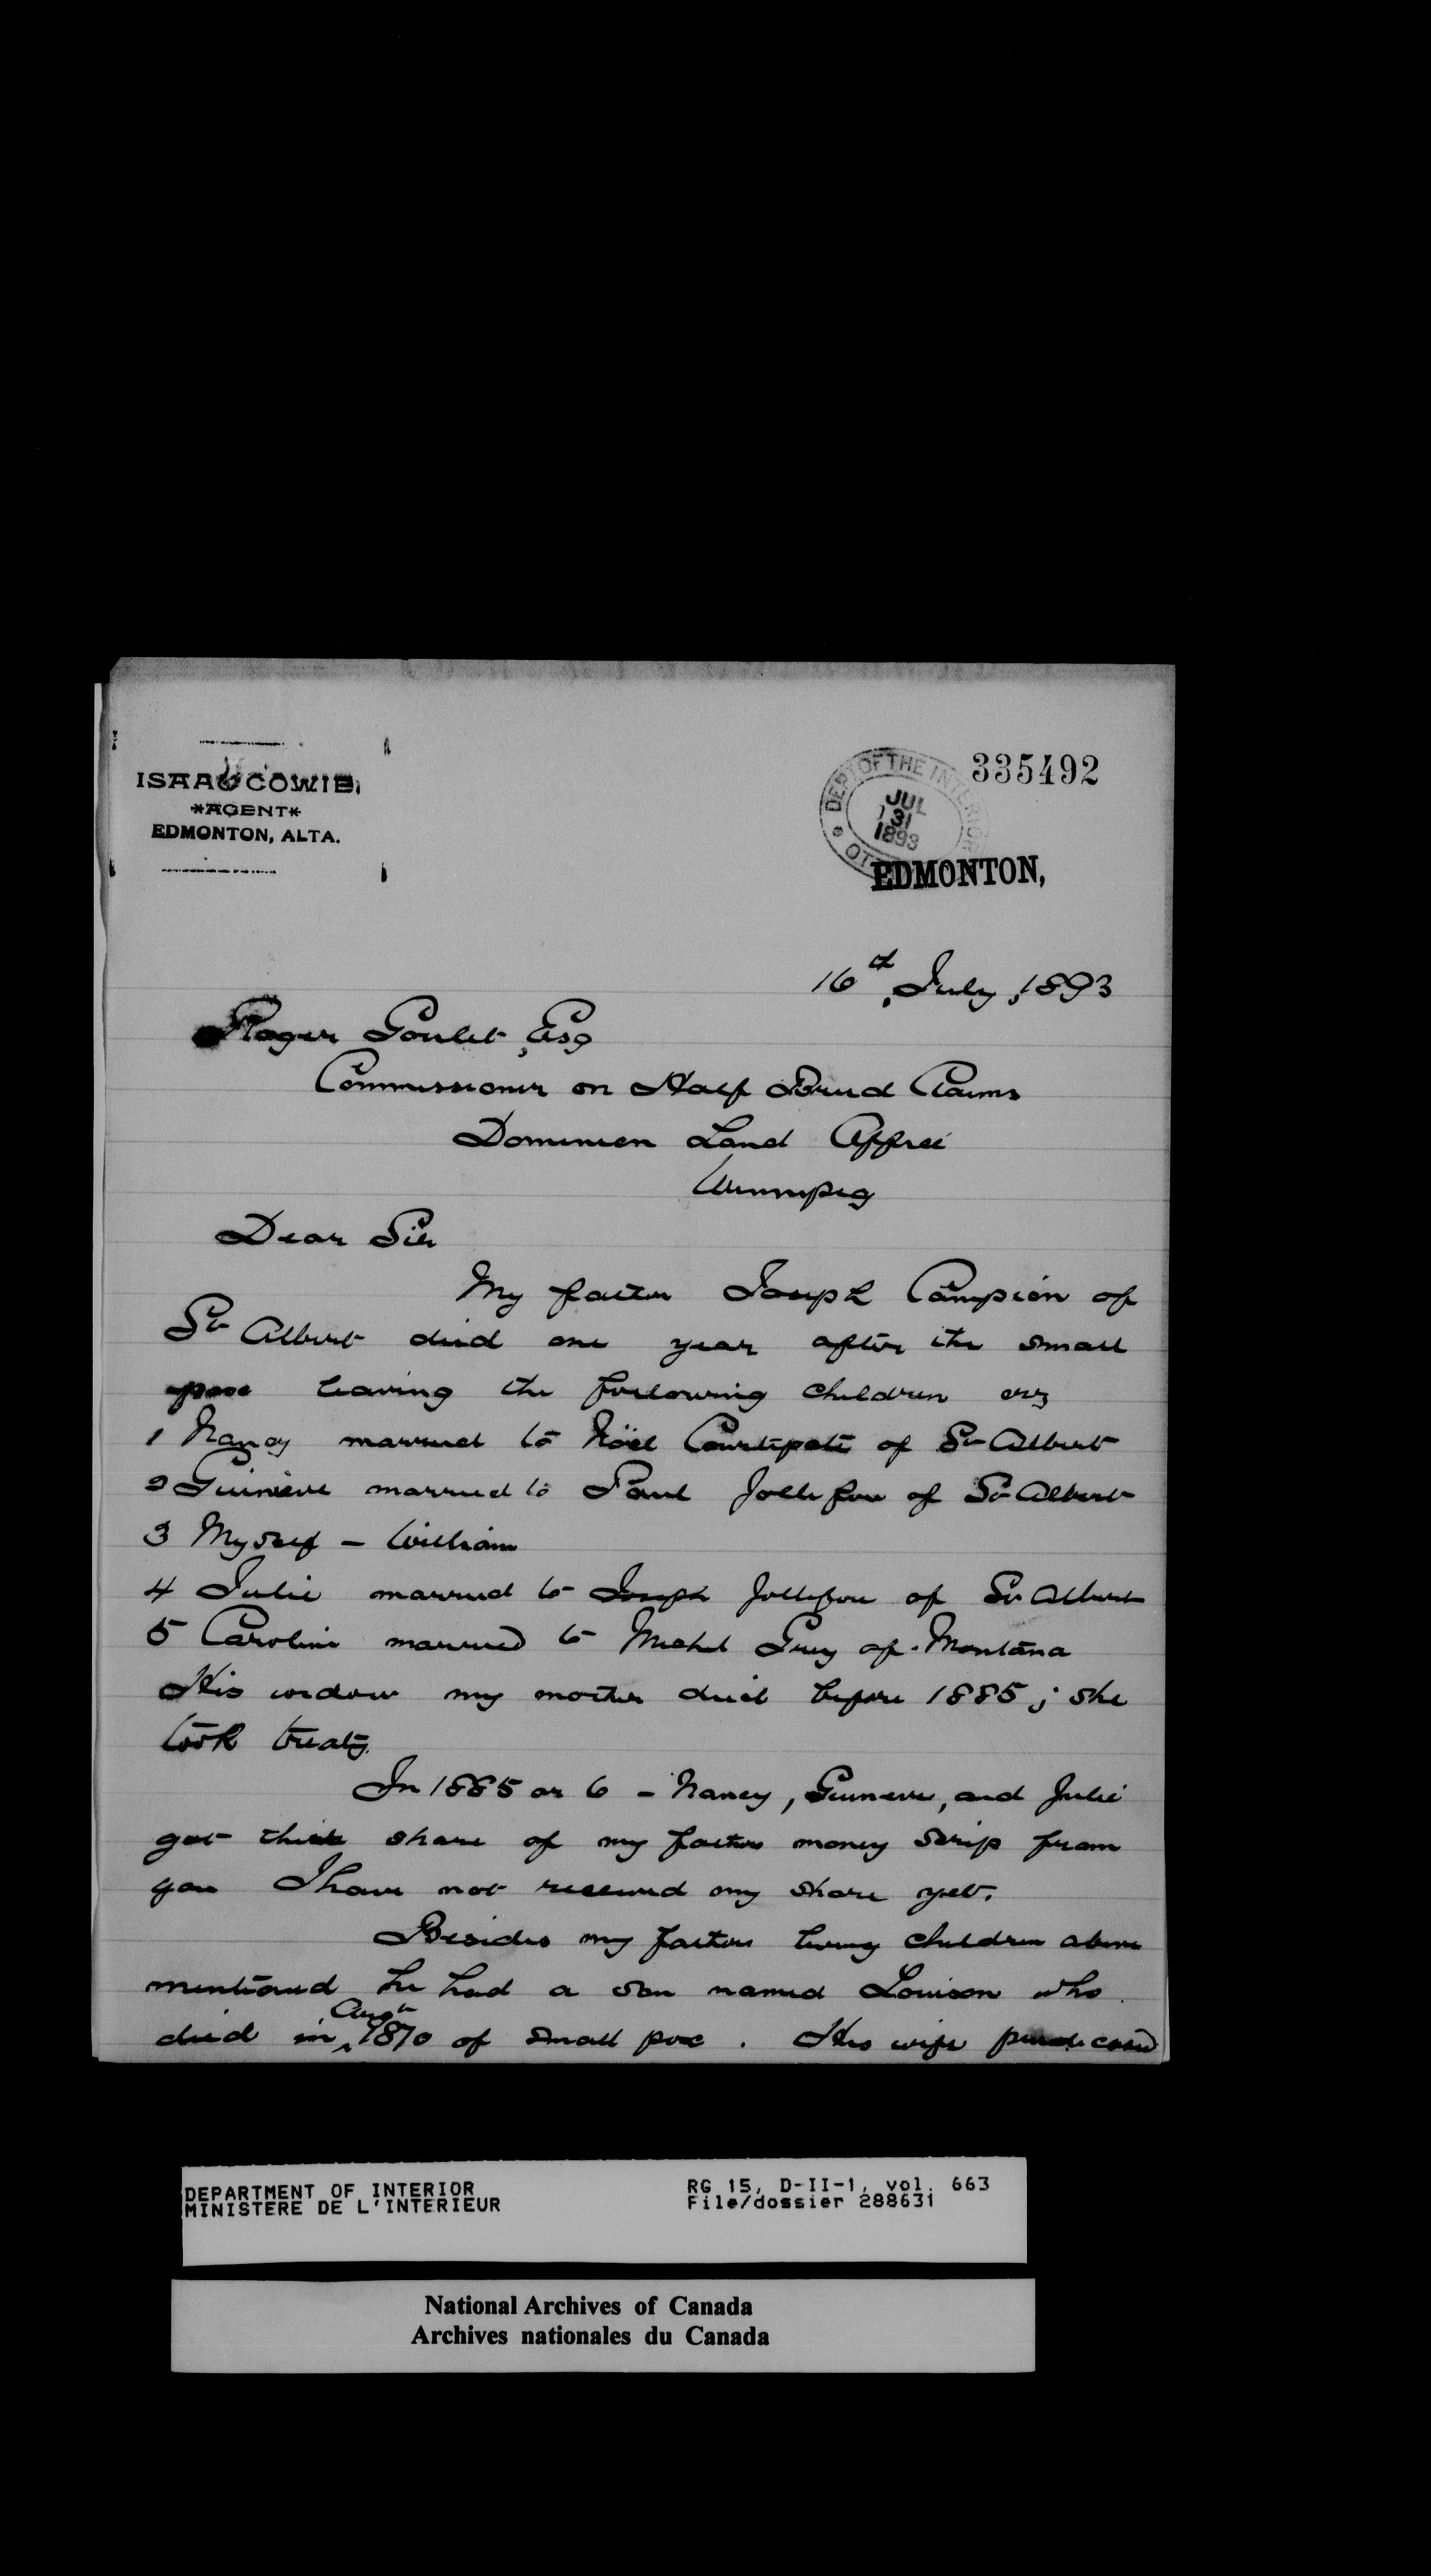 ISAAC COWIE,
*AGENT*
EDMONTON, ALTA.
335492
DEPT OF THE INTERIOR
JUL
31
1893
EDMONTON,
16th July, 1893
Roger Goulet, Esq
Commissioner on Half Breed Claims
Dominion Land Office
Winnipeg
Dear Sir
My father Joseph Campion of
St Albert died one year after the small
pox leaving the following children viz
1 Nancy married to Nöel Courtepate of St Albert
2 Guinieve married to Paul Jollifou of St Albert
3 Myself - William
4 Julie married to Joseph Jollifou of St Albert
5 Caroline married to Michel Guy of Montana
His widow my mother died before 1885; she
took treaty.
In 1885 or 6 - Nancy, Guineve, and Julie
got their share of my fathers money scrip from
you I have not received my share yet.
Besides my fathers living children above
mentioned he had a son named Louison who
died in Augt 1870 of small pox. His wife
DEPARTMENT OF INTERIOR
MINISTERE DE L'INTERIEUR
RG 15, D-II-1, vol. 663
File/dossier 288631
National Archives of Canada
Archives nationales du Canada